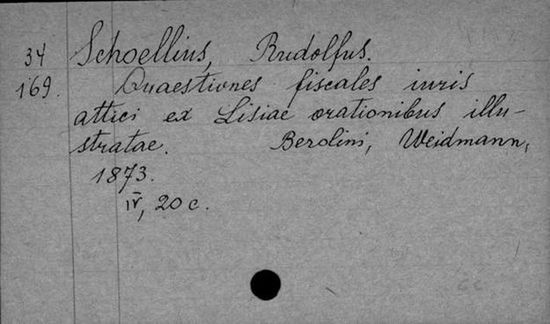 34 Schoellius, Rudolfus.
169. Quaestiones fiscales iuris
attici ex Lisiae orationibus illu-
stratae. Berolini, Weidmann,
1873.
IV, 20 c.